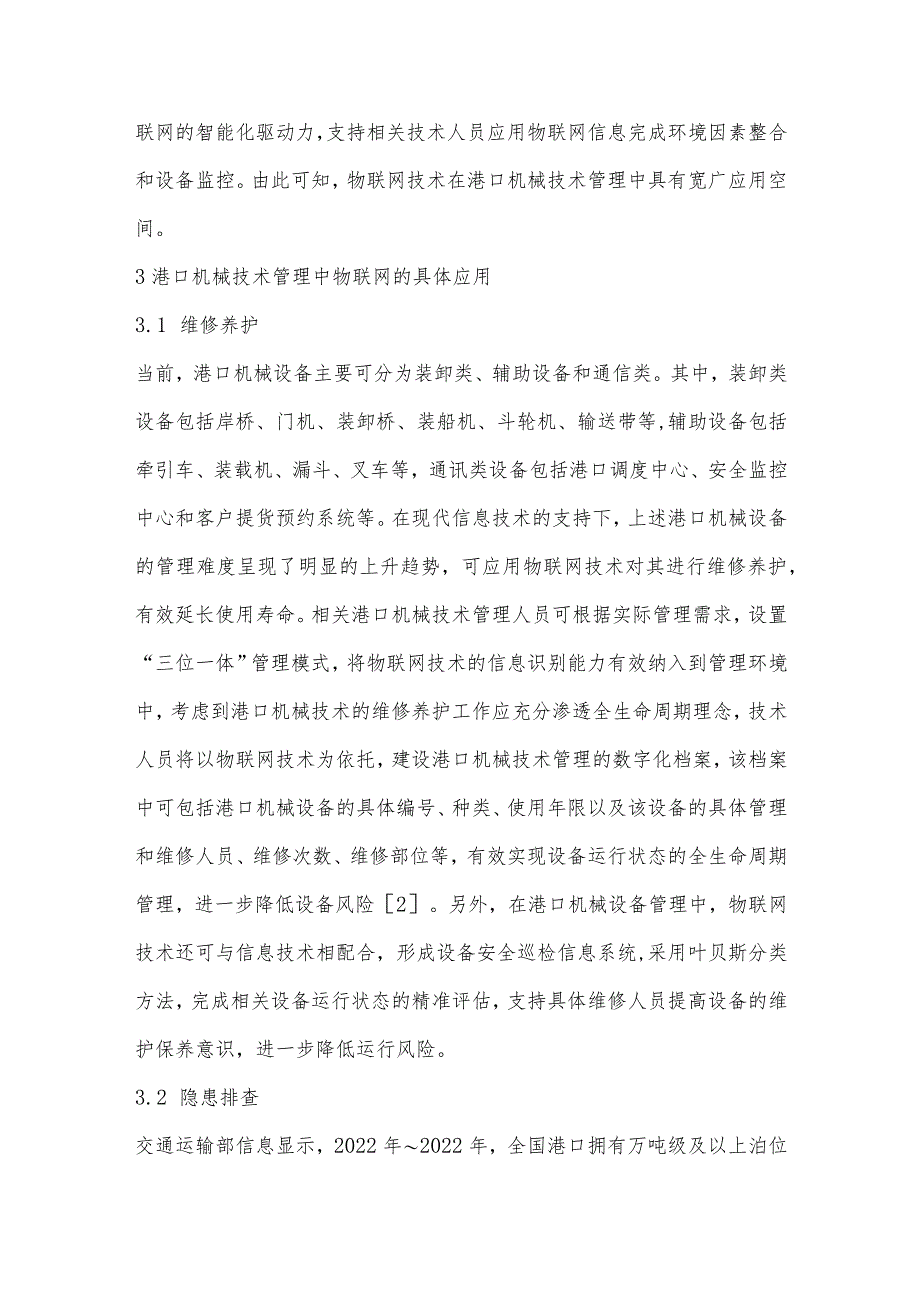 联网的智能化驱动力,支持相关技术人员应用物联网信息完成环境因素整合
和设备监控。由此可知，物联网技术在港口机械技术管理中具有宽广应用空
间。
3港口机械技术管理中物联网的具体应用
3.1 维修养护
当前，港口机械设备主要可分为装卸类、辅助设备和通信类。其中，装卸类
设备包括岸桥、门机、装卸桥、装船机、斗轮机、输送带等,辅助设备包括
牵引车、装载机、漏斗、叉车等，通讯类设备包括港口调度中心、安全监控
中心和客户提货预约系统等。在现代信息技术的支持下，上述港口机械设备
的管理难度呈现了明显的上升趋势，可应用物联网技术对其进行维修养护，
有效延长使用寿命。相关港口机械技术管理人员可根据实际管理需求，设置
“三位一体”管理模式，将物联网技术的信息识别能力有效纳入到管理环境
中，考虑到港口机械技术的维修养护工作应充分渗透全生命周期理念，技术
人员将以物联网技术为依托，建设港口机械技术管理的数字化档案，该档案
中可包括港口机械设备的具体编号、种类、使用年限以及该设备的具体管理
和维修人员、维修次数、维修部位等，有效实现设备运行状态的全生命周期
管理，进一步降低设备风险［2］。另外，在港口机械设备管理中，物联网
技术还可与信息技术相配合，形成设备安全巡检信息系统,采用叶贝斯分类
方法，完成相关设备运行状态的精准评估，支持具体维修人员提高设备的维
护保养意识，进一步降低运行风险。
3.2 隐患排查
交通运输部信息显示，2022年~2022年，全国港口拥有万吨级及以上泊位